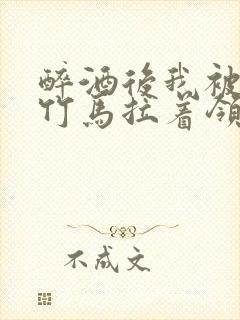 醉酒後我被
竹馬拉着領
不成文